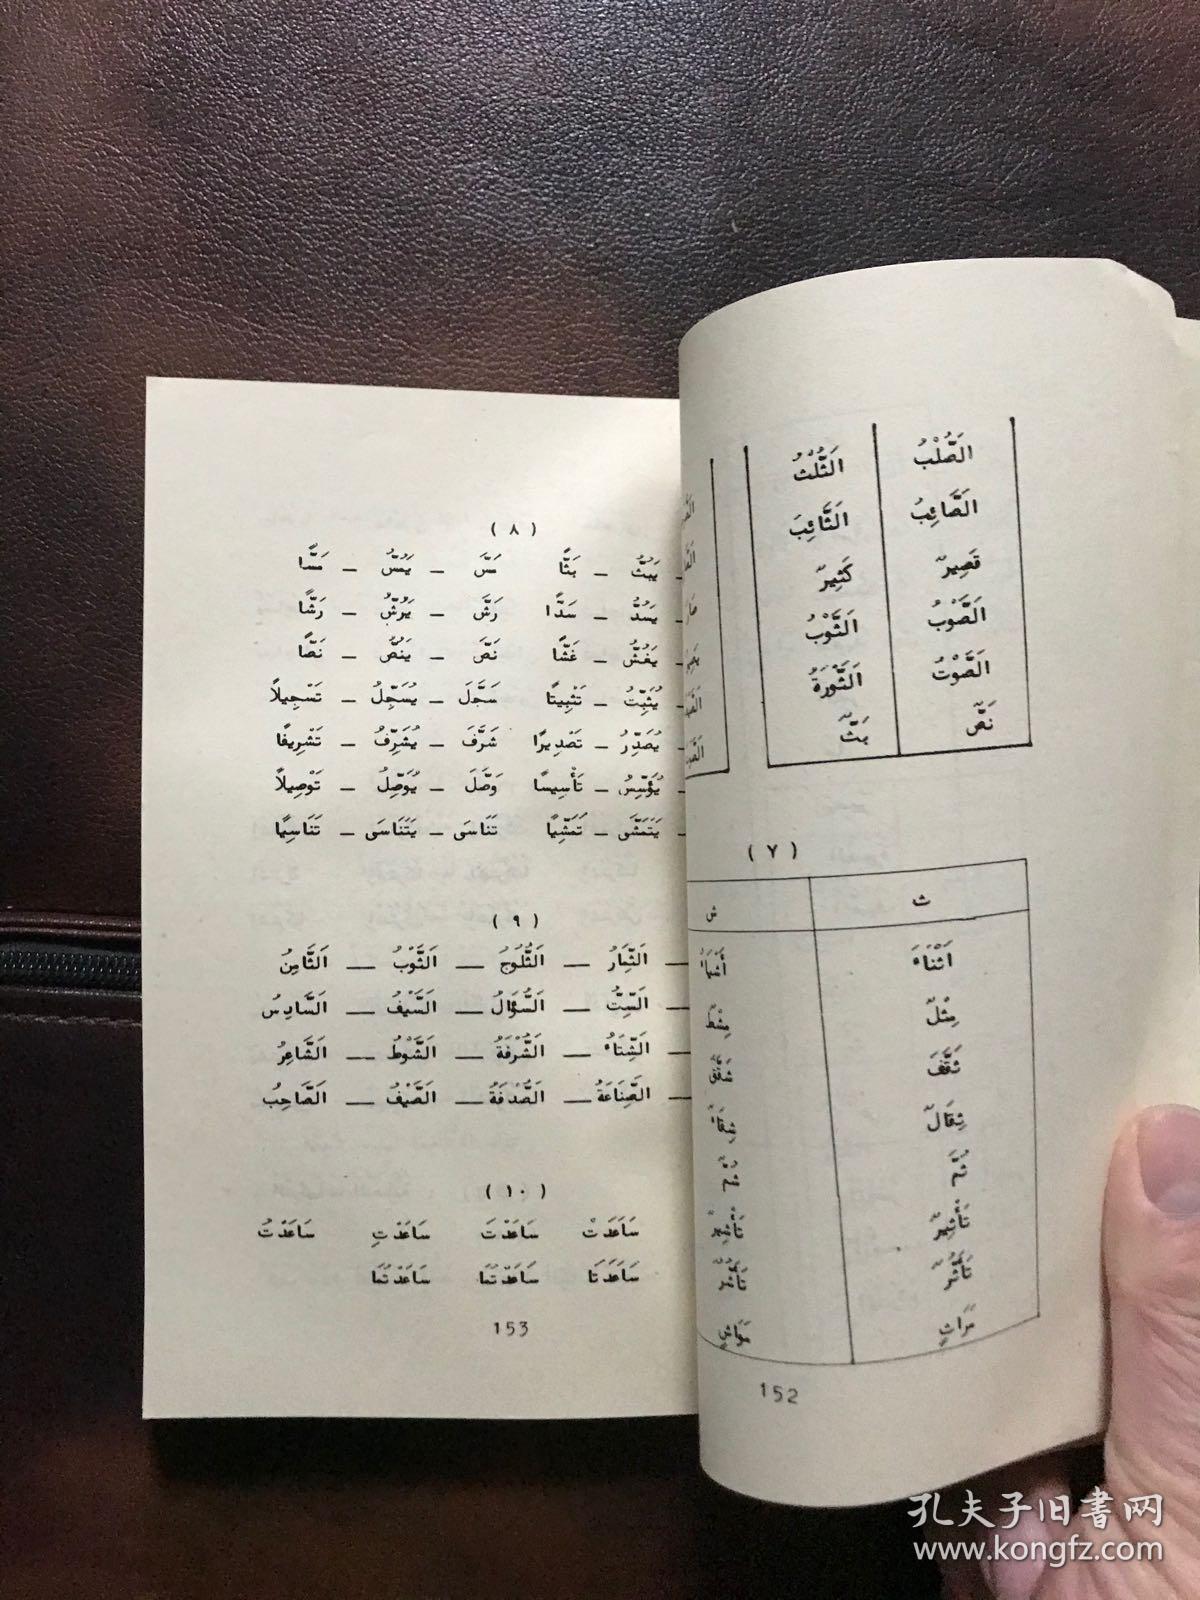 اَلصُّلْبُ اَلثُّلْثُ
اَلصَّائِبُ اَلثَّائِبَ
قَصِيرٌ كَثِيرٌ
اَلصَّوْبُ اَلثَّوْبُ
اَلصَّوْتُ اَلثَّوْرَةُ
نَصٌّ بَثٌّ
( ٧ )
ث ش
اَثْنَاءَ أَشْيَاءُ
مِثْلٌ مِشْطٌ
ثَقَّفَ شَقَّقَ
ثِقَالٌ شِقَاءٌ
ثُمَّ شُمَّ
تَأْثِيرٌ تَأْشِيرٌ
تَأَثُّرٌ
مَرَاثٍ مَوَاشٍ
152
( ٨ )
ـ يَبُثُّ ـ بَثًّا مَسَّ ـ يَمُسُّ ـ مَسًّا
يَسُدُّ ـ سَدًّا رَشَّ ـ يَرُشُّ ـ رَشًّا
يَغُشُّ ـ غَشًّا نَصَّ ـ يَنُصُّ ـ نَصًّا
يُثَبِّتُ ـ تَثْبِيتًا سَجَّلَ ـ يُسَجِّلُ ـ تَسْجِيلاً
يُصَدِّرُ ـ تَصْدِيرًا شَرَّفَ ـ يُشَرِّفُ ـ تَشْرِيفًا
ـ يُؤَسِّسُ ـ تَأْسِيسًا وَصَّلَ ـ يُوَصِّلُ ـ تَوْصِيلاً
ـ يَتَمَشَّى ـ تَمَشِّيًا تَنَاسَى ـ يَتَنَاسَى ـ تَنَاسِيًا
( ٩ )
ـ اَلثِّمَارُ ـ اَلثُّلُوجَ ـ اَلثَّوْبُ ـ اَلثَّامِنُ
ـ اَلسِّتُّ ـ اَلسُّؤَالُ ـ اَلسَّيْفُ ـ اَلسَّادِسُ
ـ اَلشِّتَاءُ ـ اَلشُّرْفَةُ ـ اَلشَّوْطُ ـ اَلشَّاعِرُ
ـ اَلصِّنَاعَةُ ـ اَلصُّدْفَةُ ـ اَلصَّيْفُ ـ اَلصَّاحِبُ
( ١٠ )
سَاعَدَتْ سَاعَدْتَ سَاعَدْتِ سَاعَدْتُ
سَاعَدَتَا سَاعَدْتُمَا سَاعَدْتُمَا
153
孔夫子旧书网
www.kongfz.com